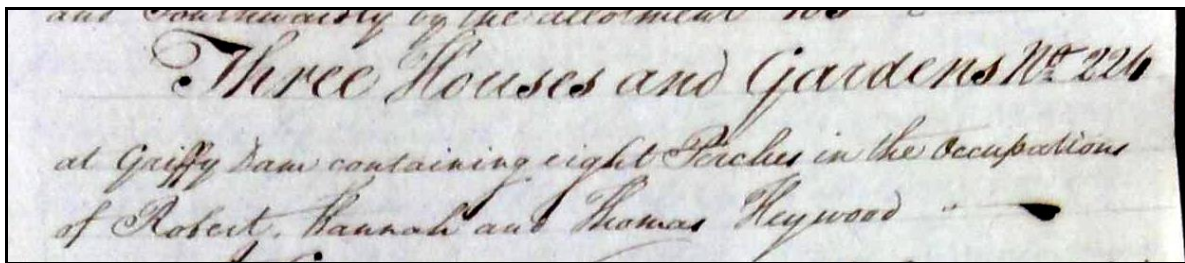 and Southwardly by the allotment No
Three Houses and Gardens No. 226
at Griffy Dam containing eight Perches in the Occupations
of Robert, Hannah and Thomas Heywood